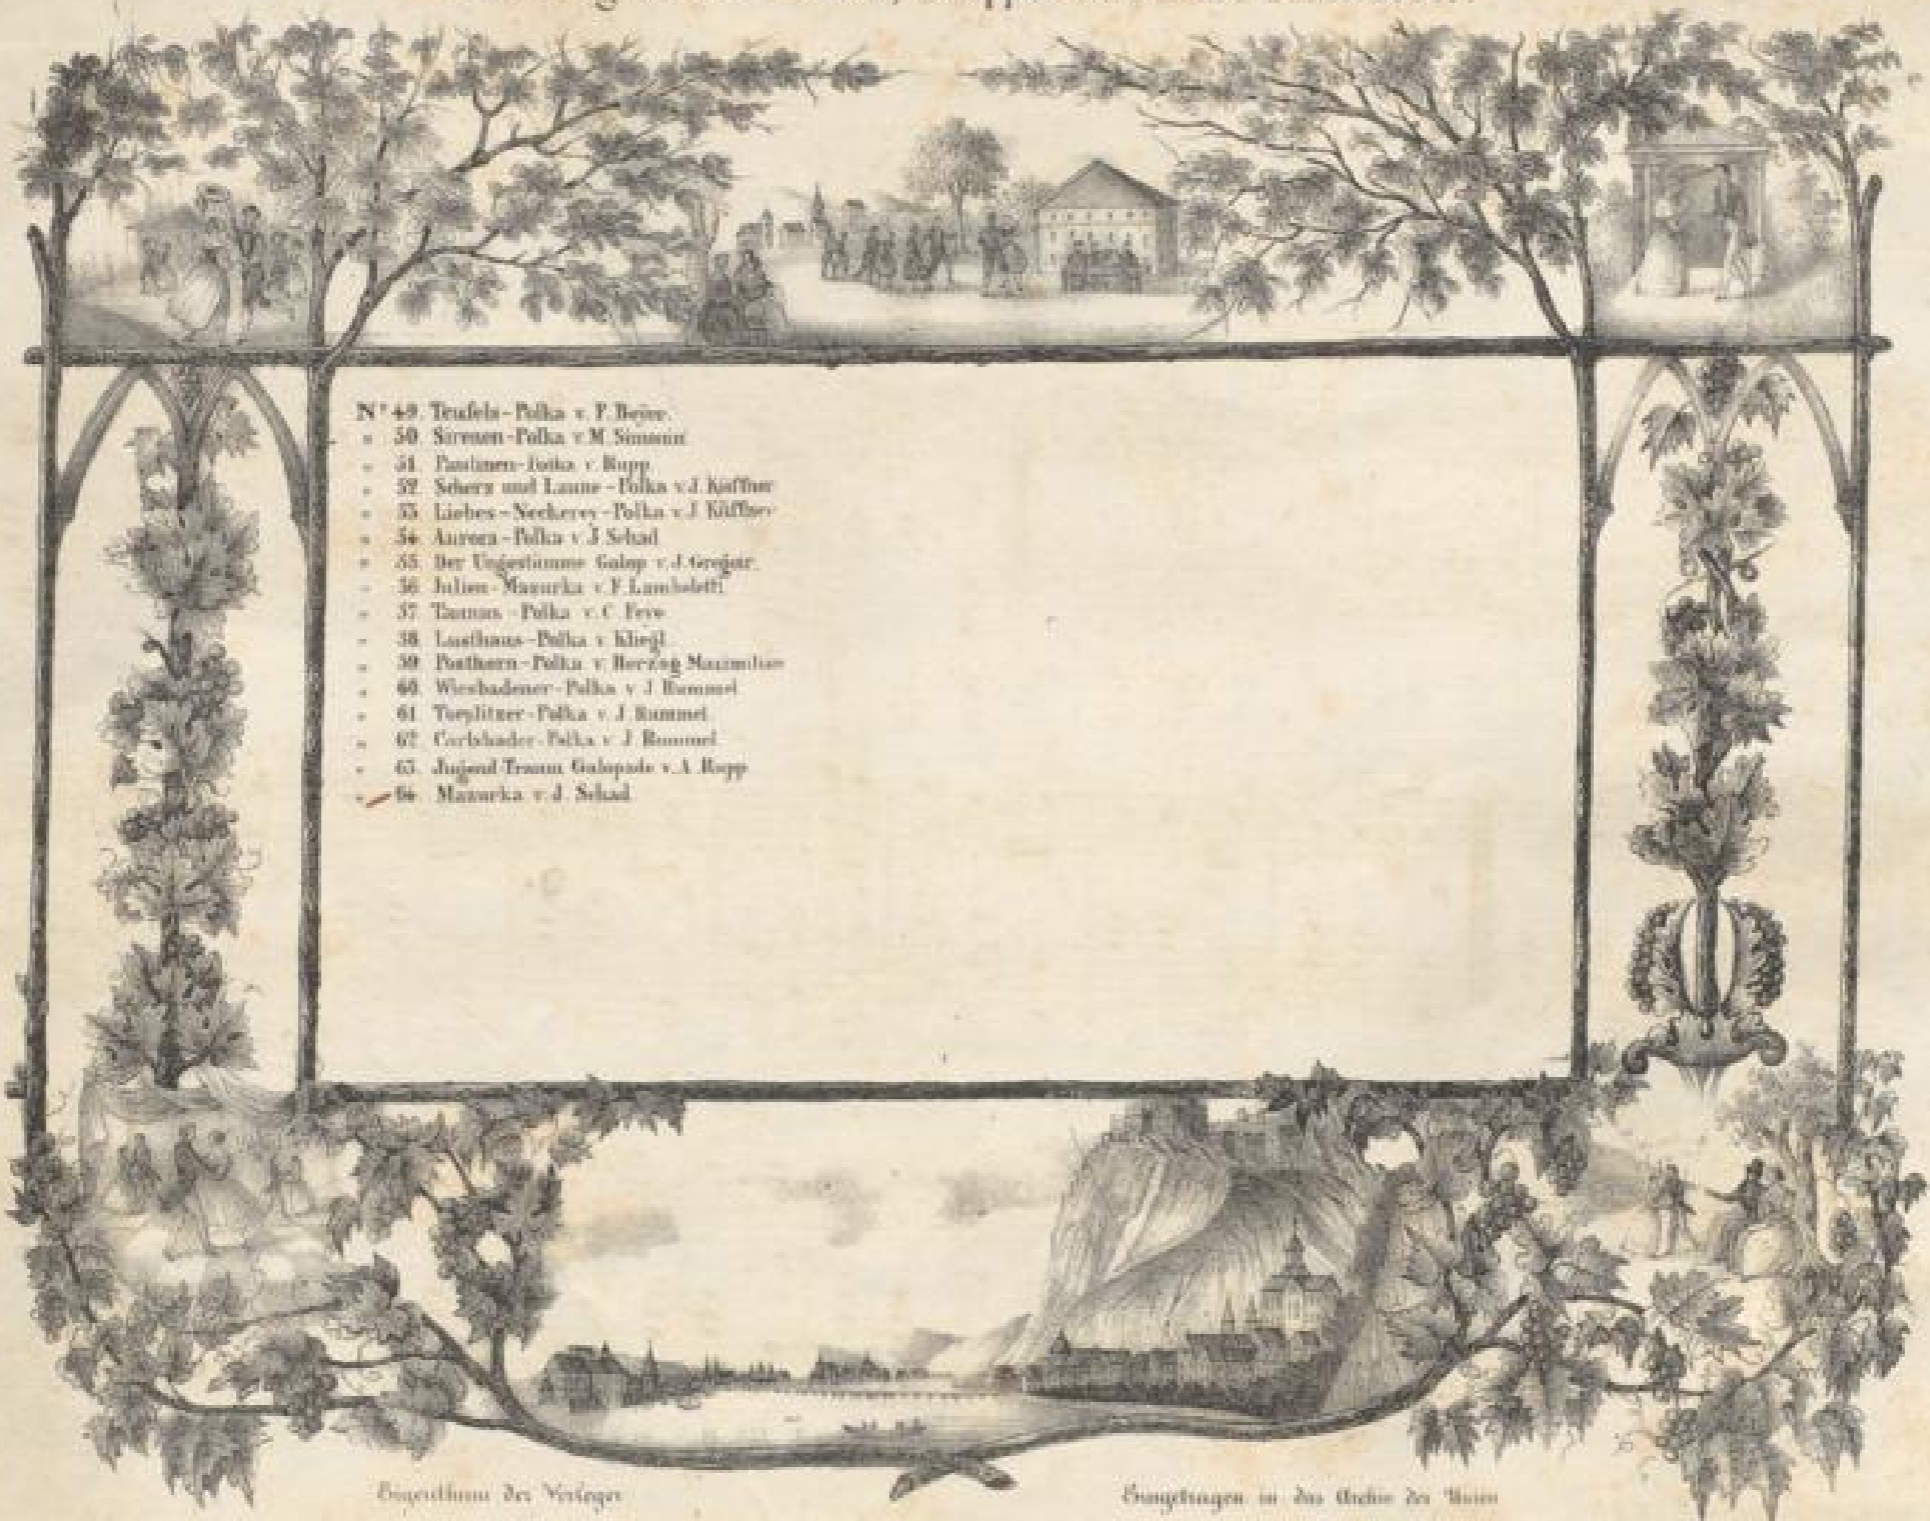 Nº 49. Teufels-Polka v. F. Beyer.
" 50. Sirenen-Polka v. M. Simonin
" 51. Paulinen-Polka v. Rupp
" 52. Scherz und Laune-Polka v. J. Küffner
" 53. Liebes-Neckerey-Polka v. J. Küffner
" 54. Aurora-Polka v. J. Schad
" 55. Der Ungestümme Galop v. J. Gregoir.
" 56. Julien-Mazurka v. F.
" 57. Taunus-Polka v. C.
" 58. Lusthaus-Polka v. Kliegl
" 59. Posthorn-Polka v. Herzog Maximilian
" 60. Wiesbadener-Polka v. J. Rummel
" 61. Toeplitzer-Polka v. J. Rummel
" 62. Carlsbader-Polka v. J. Rummel
" 63. Jugend-Traum Galopade v. A. Rupp
" 64. Mazurka v. J. Schad
Eigenthum der Verleger
Eingetragen in das Archiv der Union